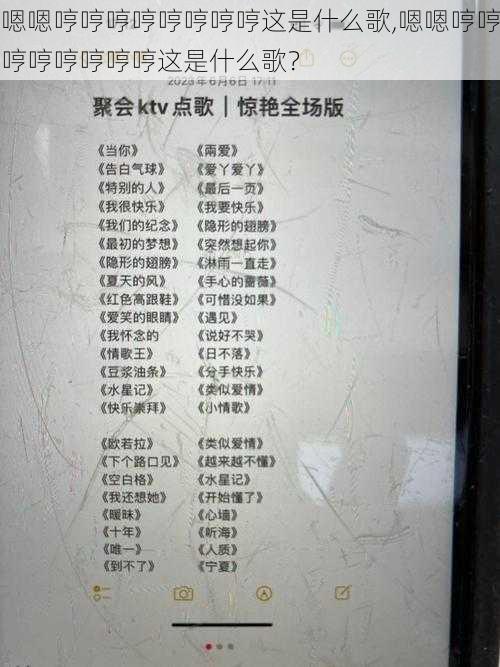 嗯嗯哼哼哼哼哼哼哼哼这是什么歌,嗯嗯哼哼
哼哼哼哼哼哼这是什么歌?
2023年6月6日 17:11
聚会ktv点歌｜惊艳全场版
《当你》 《兩爱》
《告白气球》 《爱丫爱丫》
《特别的人》 《最后一页》
《我很快乐》 《我要快乐》
《我们的纪念》 《隐形的翅膀》
《最初的梦想》 《突然想起你》
《隐形的翅膀》 《淋雨一直走》
《夏天的风》 《手心的蔷薇》
《红色高跟鞋》 《可惜没如果》
《爱笑的眼睛》 《遇见》
《我怀念的 《说好不哭》
《情歌王》 《日不落》
《豆浆油条》 《分手快乐》
《水星记》 《类似爱情》
《快乐崇拜》 《小情歌》
《欧若拉》 《类似爱情》
《下个路口见》 《越来越不懂》
《空白格》 《水星记》
《我还想她》 《开始懂了》
《暖昧》 《心墙》
《十年》 《听海》
《唯一》 《人质》
《到不了》 《宁夏》